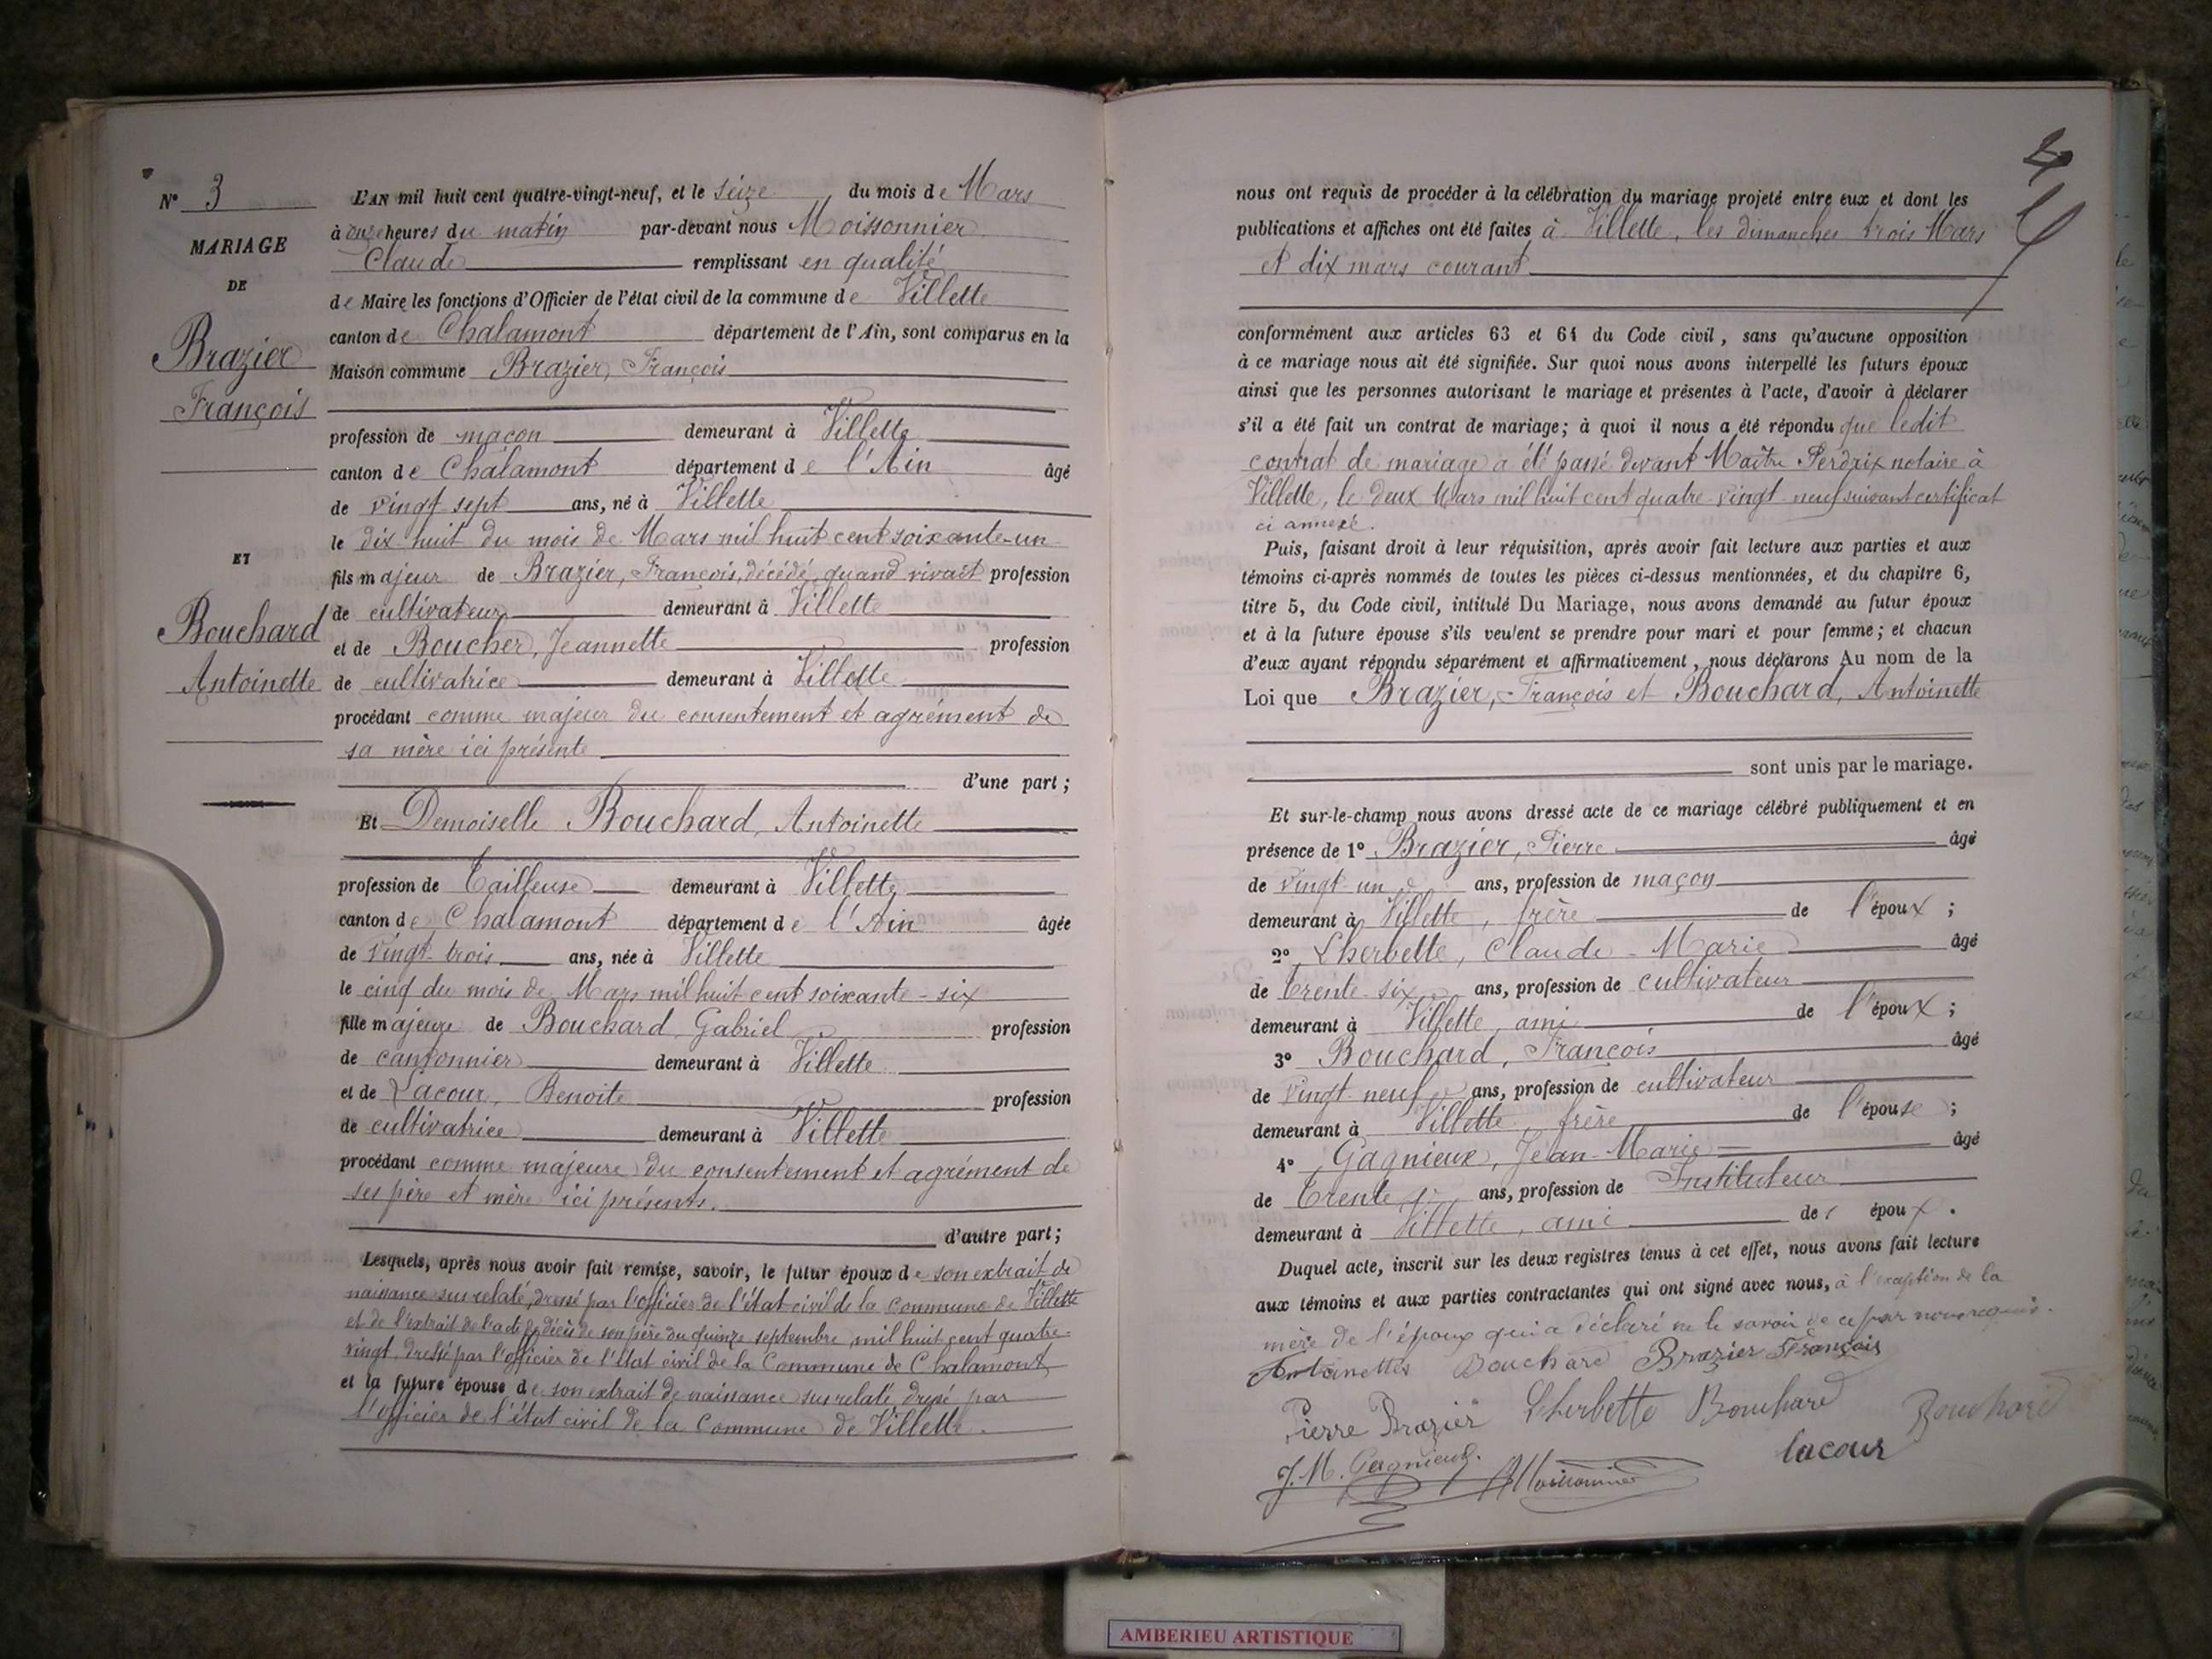 N° 3
MARIAGE
DE
Brazier
François
ET
Bouchard
Antoinette
L'AN mil huit cent quatre-vingt-neuf, et le seize du mois de Mars
à onze heures du matin par-devant nous Moissonnier
Claude remplissant en qualité
de Maire les fonctions d'Officier de l'état civil de la commune de Villette
canton de Chalamont département de l'Ain, sont comparus en la
Maison commune Brazier, François
profession de maçon demeurant à Villette
canton de Chalamont département de l'Ain âgé
de vingt sept ans, né à Villette
le dix-huit du mois de Mars mil huit cent soixante-un
fils majeur de Brazier, François, décédé, quand vivait profession
de cultivateur demeurant à Villette
et de Boucher, Jeannette profession
de cultivatrice demeurant à Villette
procédant comme majeur du consentement et agrément de
sa mère ici présente
d'une part ;
Et Demoiselle Bouchard, Antoinette
profession de Tailleuse demeurant à Villette
canton de Chalamont département de l'Ain âgée
de vingt-trois ans, née à Villette
le cinq du mois de Mars mil huit cent soixante-six
fille majeure de Bouchard Gabriel profession
de cantonnier demeurant à Villette
et de Lacour, Benoite profession
de cultivatrice demeurant à Villette
procédant comme majeure du consentement et agrément de
ses père et mère ici présents.
d'autre part ;
Lesquels, après nous avoir fait remise, savoir, le futur époux de son extrait de
naissance sus relaté, dressé par l'officier de l'état civil de la commune de Villette
et de l'extrait de l'acte de décès de son père du quinze septembre mil huit cent quatre-
vingt, dressé par l'officier de l'état civil de la Commune de Chalamont
et la future épouse de son extrait de naissance sus relaté, dressé par
l'officier de l'état civil de la Commune de Villette.
4
nous ont requis de procéder à la célébration du mariage projeté entre eux et dont les
publications et affiches ont été faites à Villette, les dimanches trois Mars
et dix mars courant
conformément aux articles 63 et 64 du Code civil, sans qu'aucune opposition
à ce mariage nous ait été signifiée. Sur quoi nous avons interpellé les futurs époux
ainsi que les personnes autorisant le mariage et présentes à l'acte, d'avoir à déclarer
s'il a été fait un contrat de mariage ; à quoi il nous a été répondu que ledit
contrat de mariage a été passé devant Maître Perdrix notaire à
Villette, le deux Mars mil huit cent quatre-vingt-neuf suivant certificat
ci annexé.
Puis, faisant droit à leur réquisition, après avoir fait lecture aux parties et aux
témoins ci-après nommés de toutes les pièces ci-dessus mentionnées, et du chapitre 6,
titre 5, du Code civil, intitulé Du Mariage, nous avons demandé au futur époux
et à la future épouse s'ils veulent se prendre pour mari et pour femme ; et chacun
d'eux ayant répondu séparément et affirmativement, nous déclarons Au nom de la
Loi que Brazier, François et Bouchard, Antoinette
sont unis par le mariage.
Et sur-le-champ nous avons dressé acte de ce mariage célébré publiquement et en
présence de 1° Brazier, Pierre âgé
de vingt-un ans, profession de maçon
demeurant à Villette, frère de l'époux ;
2° Lherbette, Claude-Marie âgé
de trente-six ans, profession de cultivateur
demeurant à Villette, ami de l'époux ;
3° Bouchard, François âgé
de vingt-neuf ans, profession de cultivateur
demeurant à Villette, frère de l'épouse ;
4° Gagnieux, Jean-Marie âgé
de trente ans, profession de Instituteur
demeurant à Villette, ami de l'époux.
Duquel acte, inscrit sur les deux registres tenus à cet effet, nous avons fait lecture
aux témoins et aux parties contractantes qui ont signé avec nous, à l'exception de la
mère de l'époux qui a déclaré ne le savoir de ce par nous requis.
Antoinette Bouchard Brazier François
Pierre Brazier Lherbette Bouchard Bouchard
J. M. Gagnieux Moissonnier lacour
AMBERIEU ARTISTIQUE